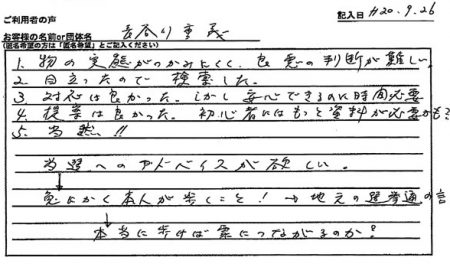 ご利用者の声
記入日 H20.9.26
お客様の名前or団体名 長谷川重義
(匿名希望の方は「匿名希望」とご記入ください)
1. 物の実態がつかみにくく、良悪の判断が難しい。
2. 目立ったので検索した。
3. 対応は良かった。しかし安心できるのに時間必要
4. 提案は良かった。初心者にはもっと資料が必要かも?
5. 当然!!
当選へのアドバイスが欲しい。
↓
兎にかく本人が歩くこと! → 地元の選挙通の言
↓
本当に歩けば票につながるのか?